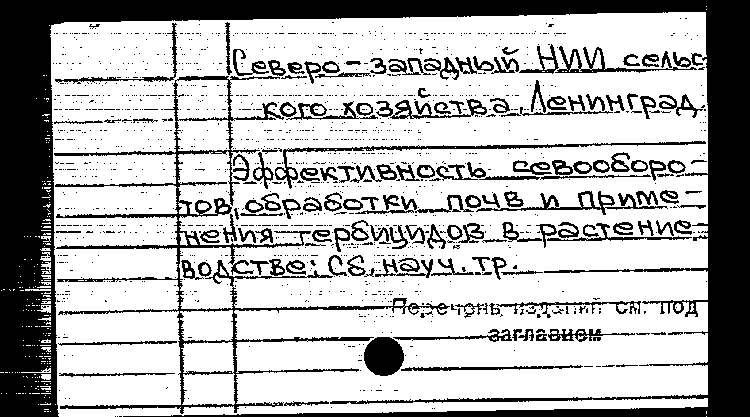 Северо-западный НИИ сельс
кого хозяйства, Ленинград.
Эффективность севооборо-
тов, обработки почв и приме-
нения гербицидов в растение-
водстве: Сб. науч. тр.
Перечень изданий см. под
заглавием